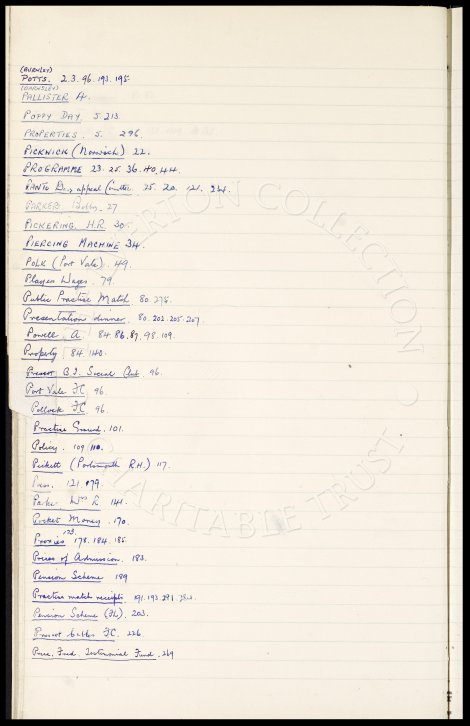 (BURNLEY)
POTTS. 2.3.96.193.195
(BARNSLEY)
PALLISTER 4.
POPPY DAY. 5.213
PROPERTIES. 5. 296.
PICKWICK (Norwich) 22.
PROGRAMME 23.25.36.40.44
appeal 25.20.
PARKER Bobby. 27
PICKERING. H.R. 30
PIERCING MACHINE 34.
POLK (Port Vale). 49.
Players Wages. 79.
Public Practice Match 80.278.
Presentation dinner. 80.202.205.207
Powell. A. 84.86.87.98.109.
Property 84.140.
Prescot B.I. Social Club. 96.
Port Vale FC 96.
Pollock FC 96.
Practice Ground. 101.
Policy. 109.110.
Pickett (Portsmouth R.H.) 117.
Press. 121.179
Parker Wm E 141.
Pocket Money. 170.
Proxies 123. 178.184.185.
Prices of Admission. 183.
Pension Scheme 189
Practice match receipts 191.193.281.
Pension Scheme (FL). 203.
Prescot Cables FC. 226.
Price. Fred. Testimonial Fund. 269
EVERTON COLLECTION
CHARITABLE TRUST